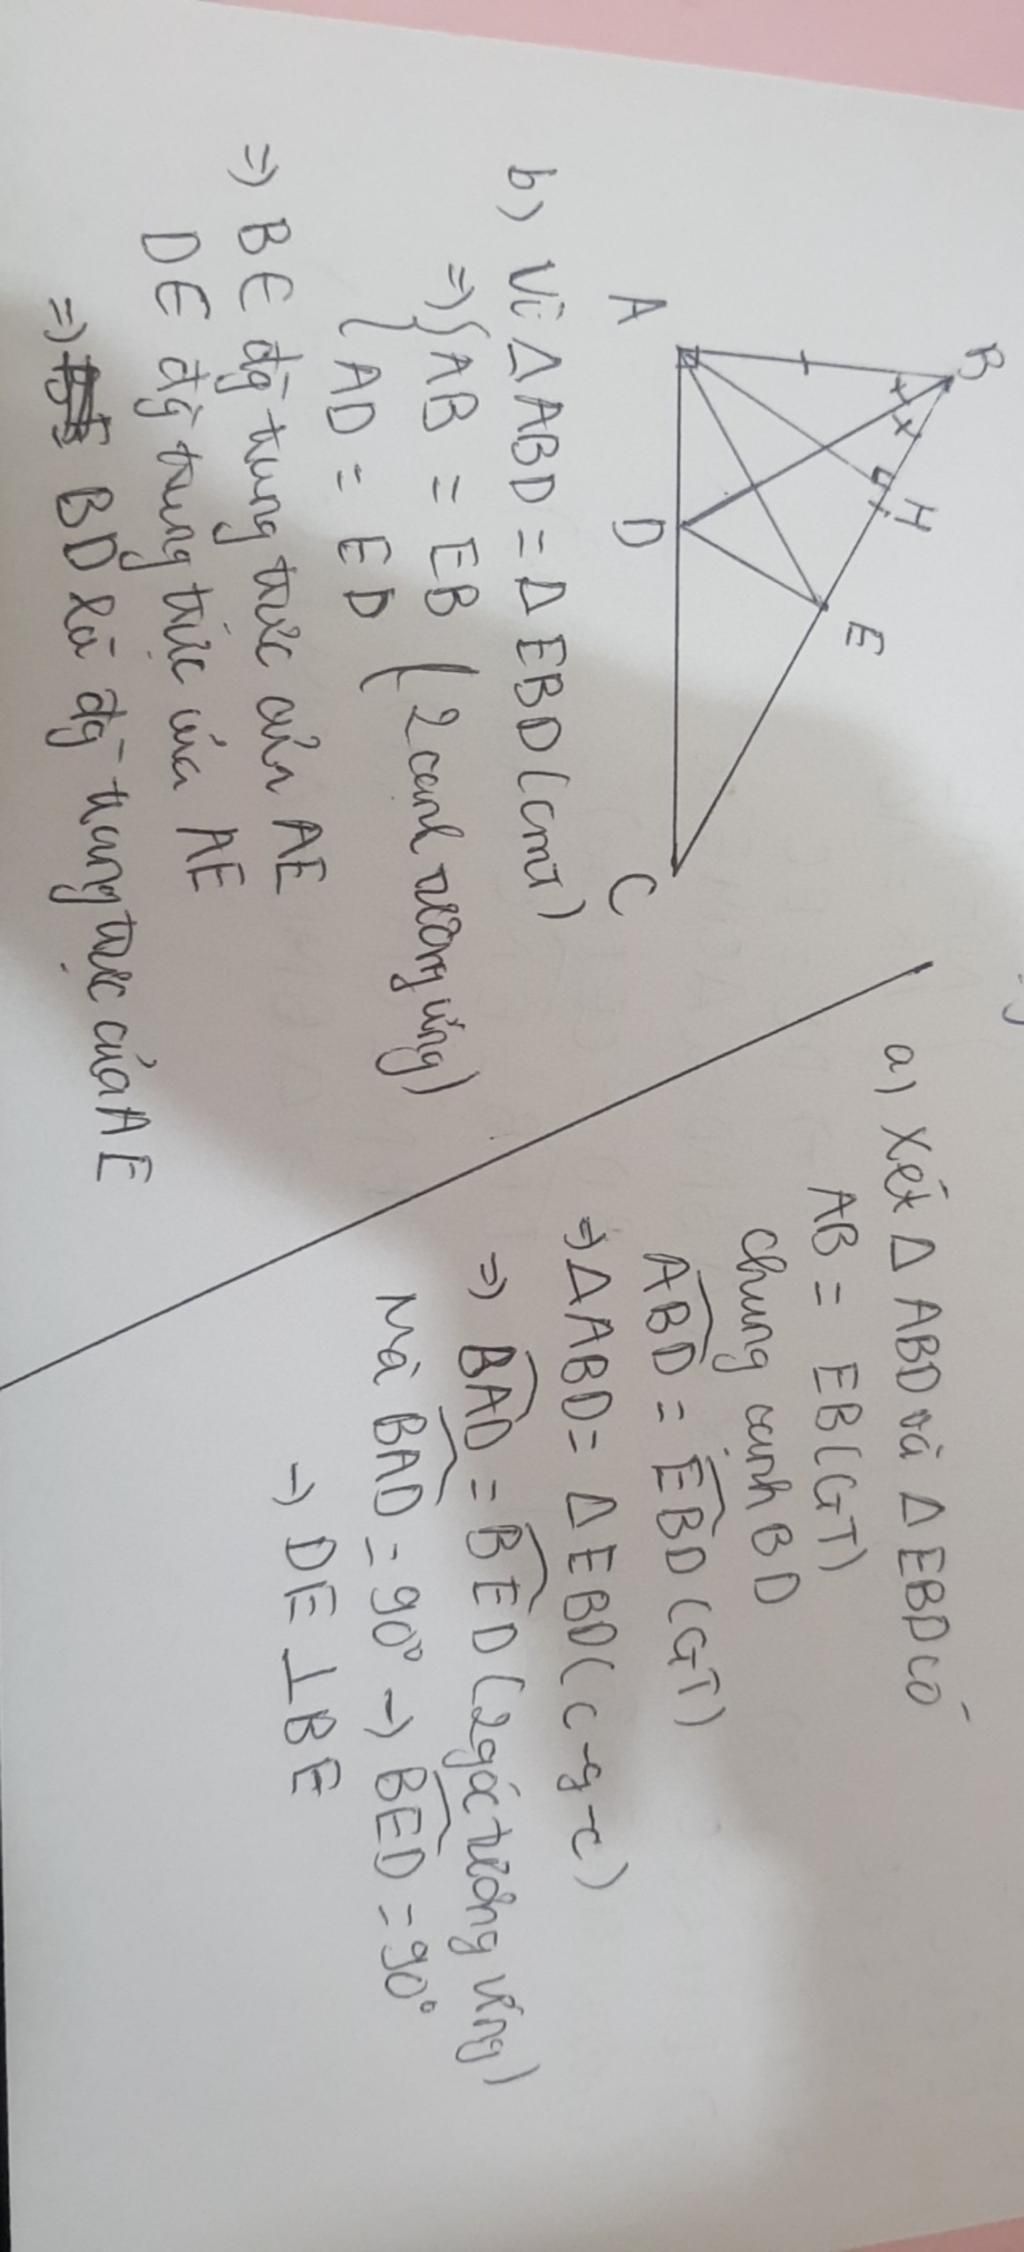 B
H
E
A
D
C
a) Xét Δ ABD và Δ EBD có
AB = EB (GT)
chung cạnh BD
ABD = EBD (GT)
=> Δ ABD = Δ EBD (c-g-c)
=> BAD = BED (2 góc tương ứng)
Mà BAD = 90° -> BED = 90°
-> DE ⊥ BE
b) Vì Δ ABD = Δ EBD (cmT)
=> { AB = EB (2 cạnh tương ứng)
{ AD = ED
=> BE đg trung trực của AE
DE đg trung trực của AE
=> BD là đg trung trực của AE